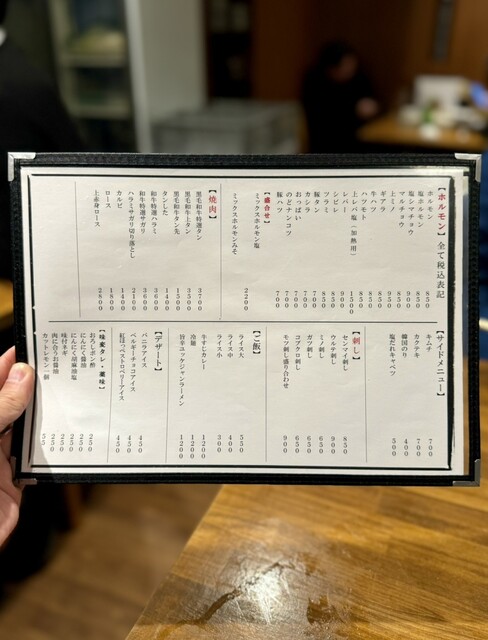 【ホルモン】全て税込表記
ホルモン 850
塩ホルモン 850
塩シマチョウ
マルチョウ
上ミノ
ギアラ
牛ハツ
ハラモト
上レバー（加熱用）
レバー
シビレ
ツラミ
豚タン
カシラ
おっぱい
のどナンコツ 700
豚ハツ 700
【盛合せ】
ミックスホルモン塩
ミックスホルモンみそ 2200
【焼肉】
黒毛和牛特選タン 3700
黒毛和牛上タン 3500
黒毛和牛タン先 1500
タンした 1400
和牛特選ハラミ 3600
和牛特選サガリ 3600
ハラミサガリ切り落とし 2100
カルビ 1400
ロース 1800
上赤身ロース 2800
【サイドメニュー】
キムチ 700
カクテキ 700
韓国のり 400
塩だれキャベツ 500
【刺し】
センマイ刺し 850
ウルテ刺し 900
ミノ刺し 950
ガツ刺し 650
コブクロ刺し 650
モツ刺し盛り合わせ 900
【ご飯】
ライス大 550
ライス中 400
ライス小 300
牛すじカレー 1200
冷麺 1200
旨辛ユッケジャンラーメン 1200
【デザート】
バニラアイス 450
ベルギーチョコアイス 450
紅ほっぺストロベリーアイス 450
【味変タレ・薬味】
おろしポン酢 250
にんにく醤油 250
にんにく胡麻油塩 250
味付ネギ 250
肉に合うお醤油 250
カットレモン一個 55